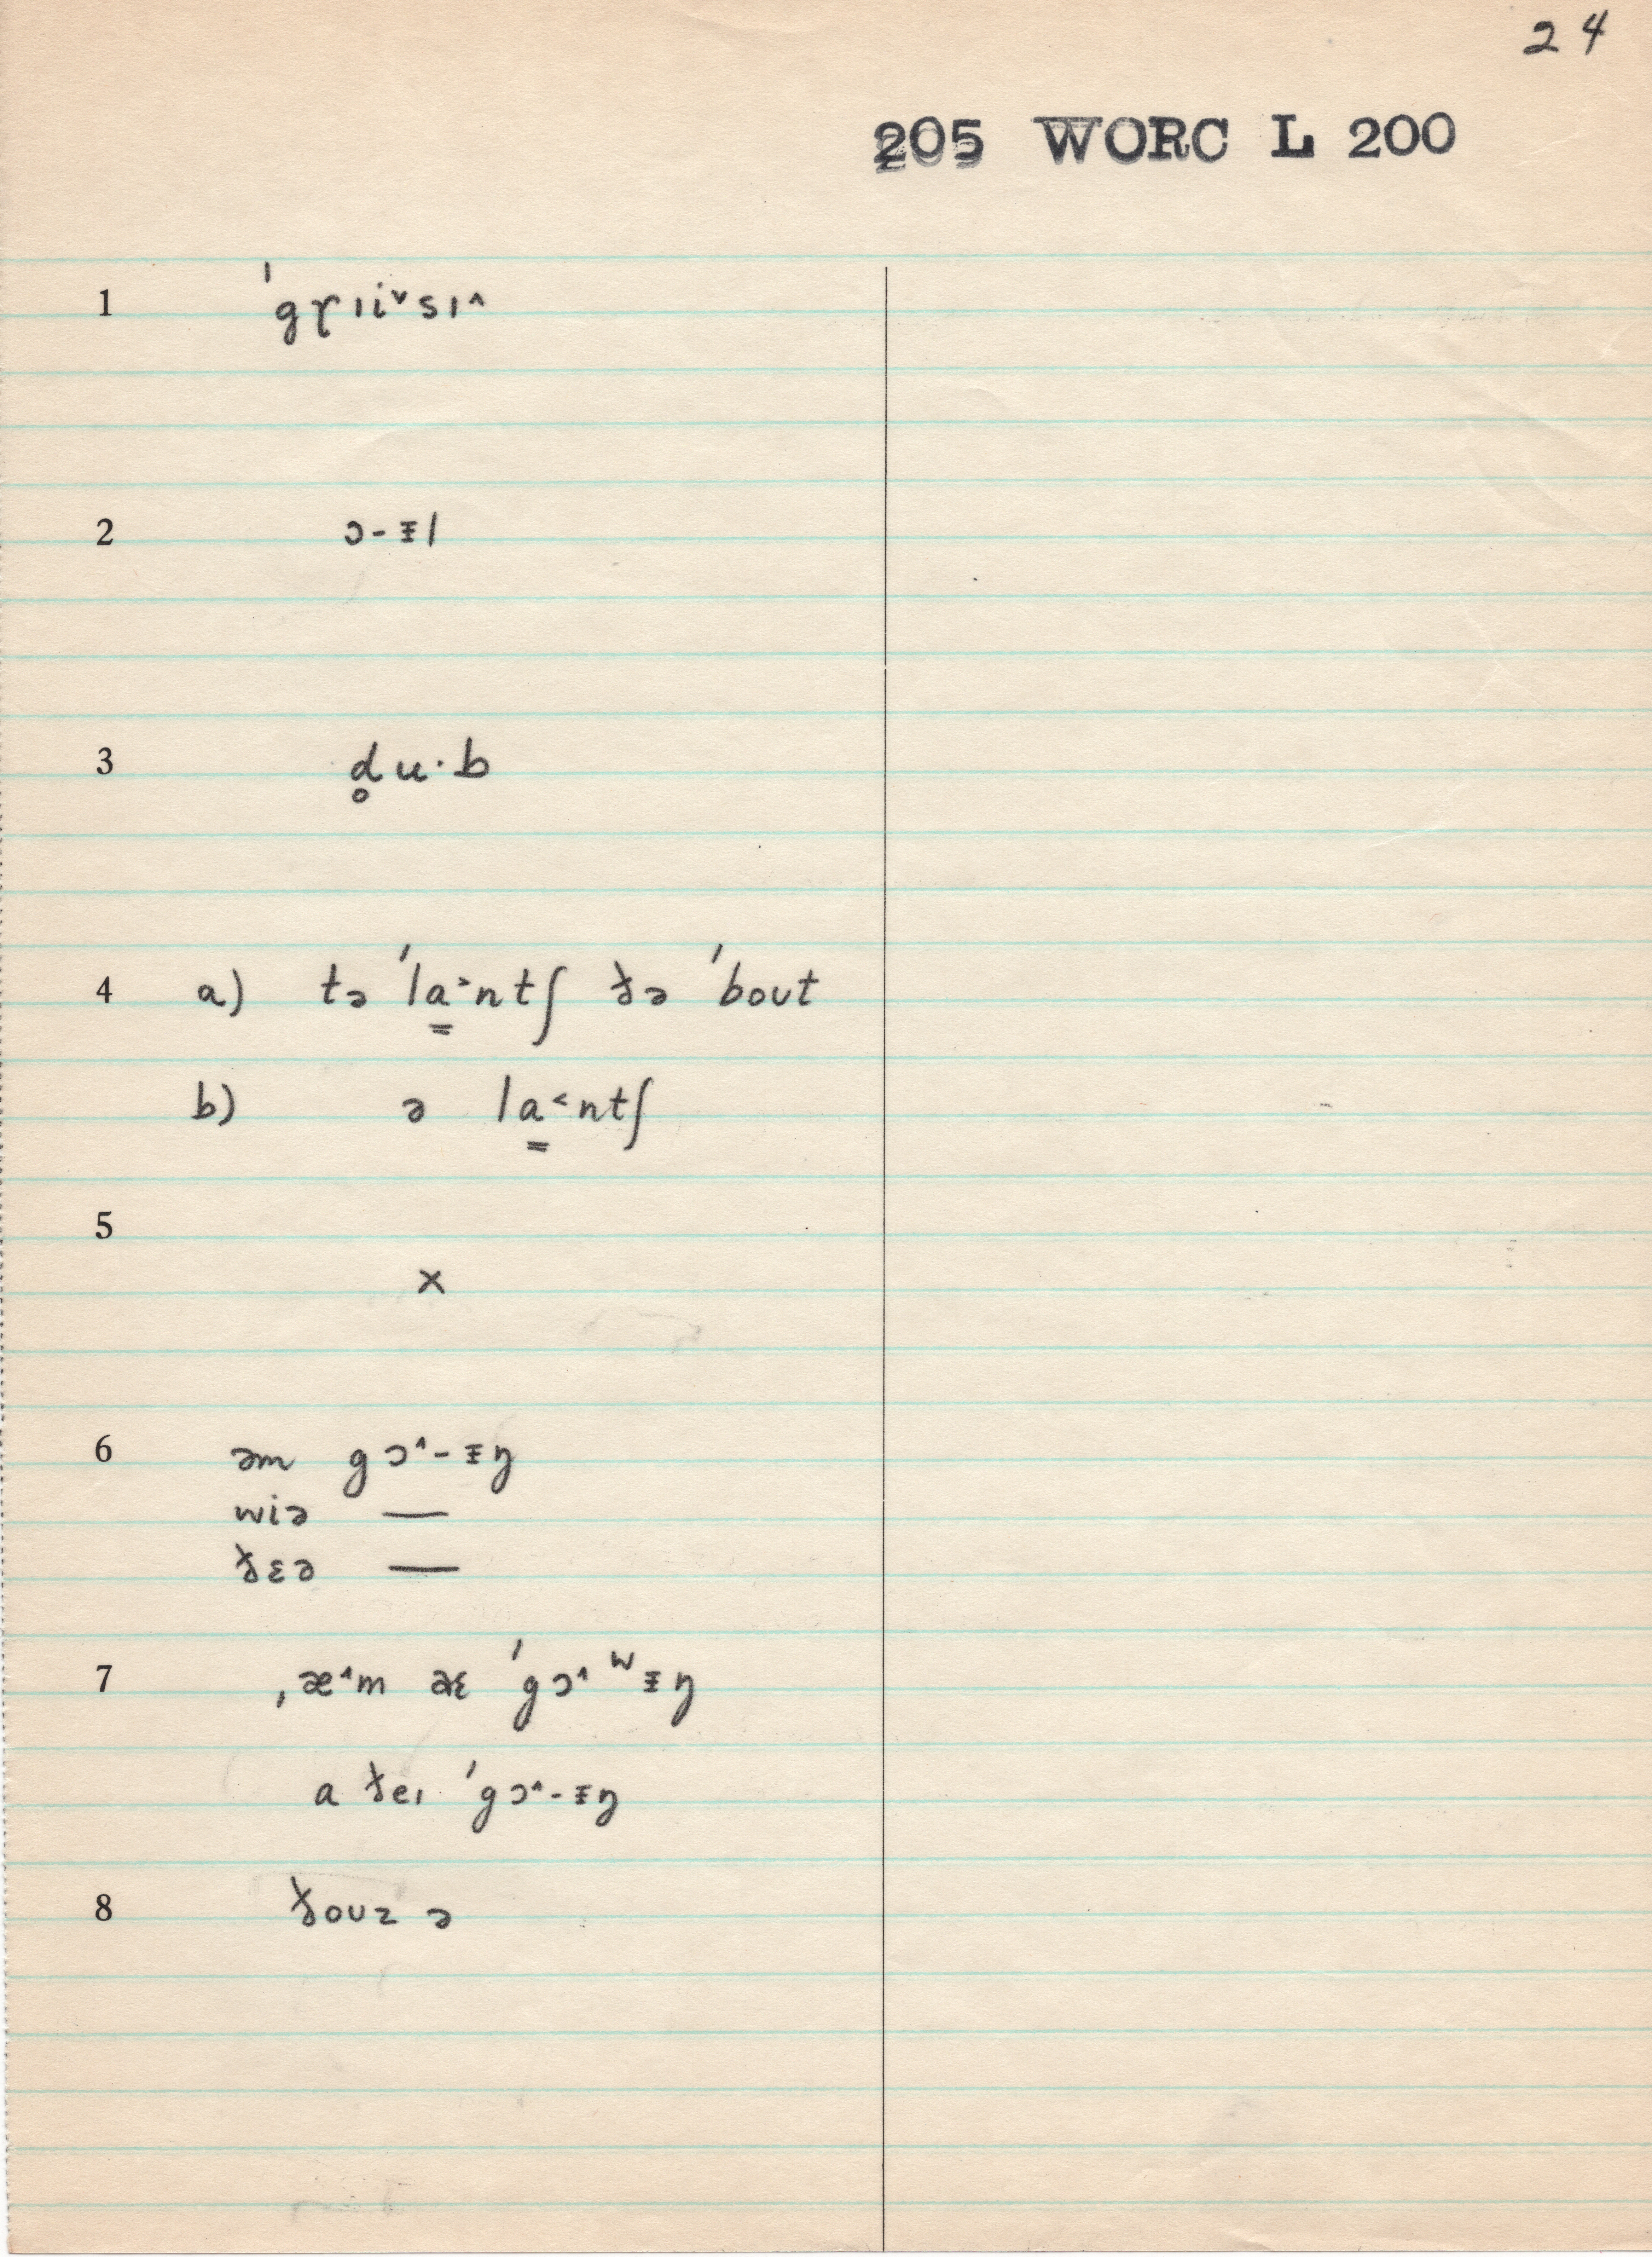 24
205 WORC L 200
1 ˈgɤɪi˅sɪ˄
2 ɔ-ᵻl
3 d̥u·b
4 a) tə ˈla̳˃ntʃ ðə ˈboʊt
b) ə la̳˂ntʃ
5
×
6 əm gɔ˄-ᵻŋ
wiə —
ðɛə —
7 ˌæ˄m æɛ ˈgɔ˄ʷᵻŋ
a ðeɪ ˈgɔ˄-ᵻŋ
8 ðoʊz ə